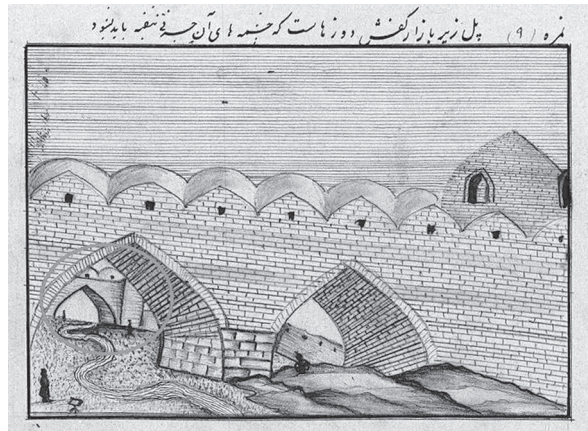 نمره (۹) پل زیر بازار کفش دوزها ست که چشمه های آن باید شود